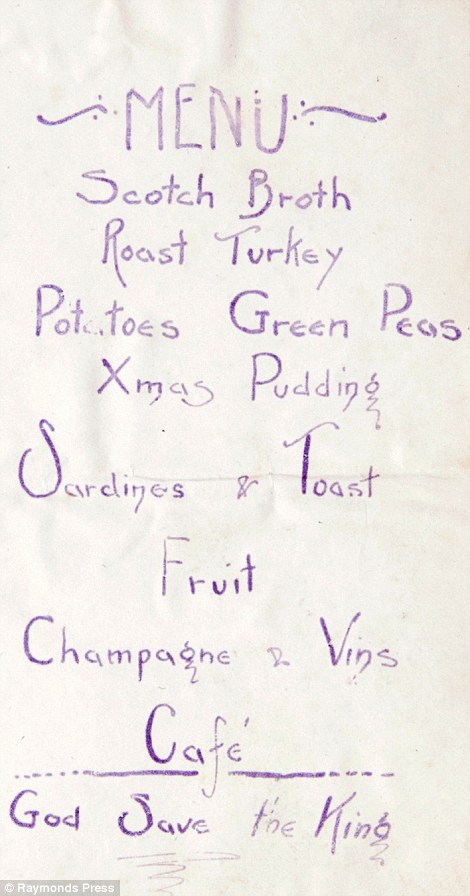 MENU
Scotch Broth
Roast Turkey
Potatoes Green Peas
Xmas Pudding
Sardines & Toast
Fruit
Champagne & Vins
Café
God Save the King
© Raymonds Press